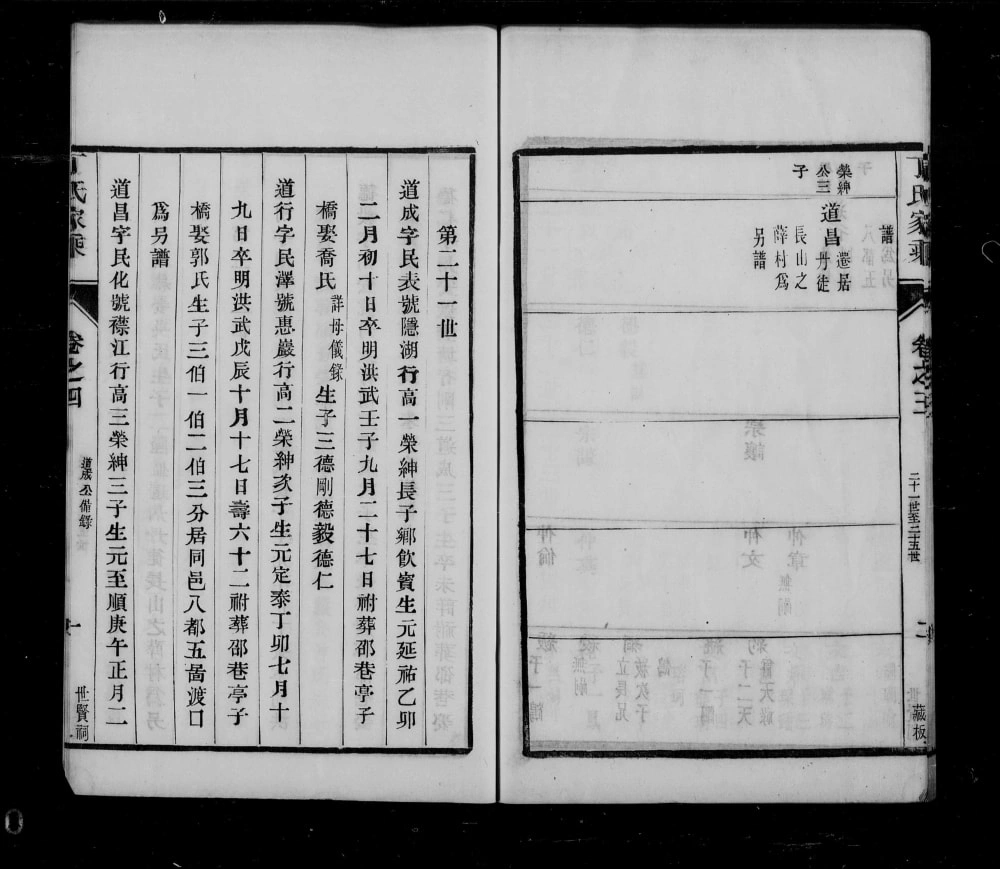 丁氏家乘
卷之三
二十一世至二十五世
二
藏板
譜
榮紳
公三
子
道昌
遷居
丹徒
長山之
薛村爲
另譜
第二十一世
道成字民表號隱湖行高一榮紳長子鄉飮賓生元延祐乙卯
二月初十日卒明洪武壬子九月二十七日祔葬邵巷亭子
橋娶喬氏詳母儀錄生子三德剛德毅德仁
道行字民澤號惠巖行高二榮紳次子生元定泰丁卯七月十
九日卒明洪武戊辰十月十七日壽六十二祔葬邵巷亭子
橋娶郭氏生子三伯一伯二伯三分居同邑八都五啚渡口
爲另譜
道昌字民化號襟江行高三榮紳三子生元至順庚午正月二
丁氏家乘
卷之四
道成公備錄
一
世賢祠